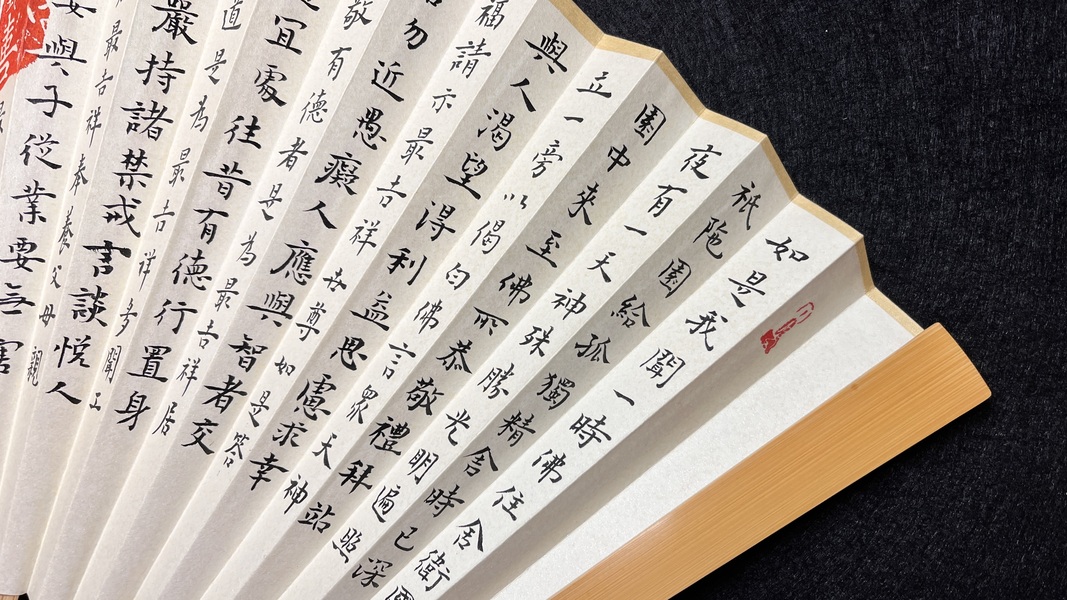 如是我聞一時佛住舍衛國
祇陁園給孤獨精舍時已深
夜有一天神殊勝光明遍照
園中來至佛所恭敬禮拜站
立一旁以偈白佛言眾天神
與人渴望得利益思慮求幸
福請示最吉祥世尊如是答
勿近愚癡人應與智者交
敬有德者是為最吉祥居
宜處往昔有德行置身
道是為最吉祥多聞工
嚴持諸禁戒言談悅人
最吉祥奉養父母親
妻與子從業要無害